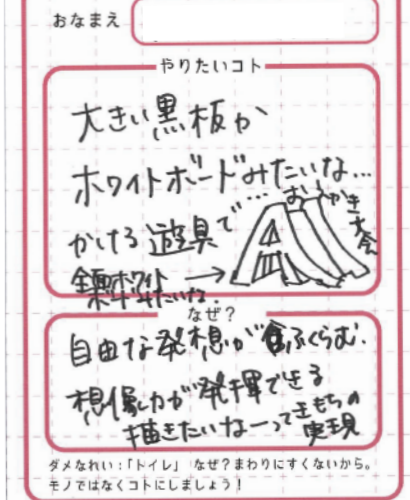 おなまえ
やりたいコト
大きい黒板か
ホワイトボードみたいな…
かける遊具で…
おらくがき
大会
全面ホワイト
ボードみたいな
なぜ?
自由な発想がふくらむ.
想像力が発揮できる
描きたいなーってきもちの
実現
ダメなれい:「トイレ」 なぜ?まわりにすくないから。
モノではなくコトにしましょう!